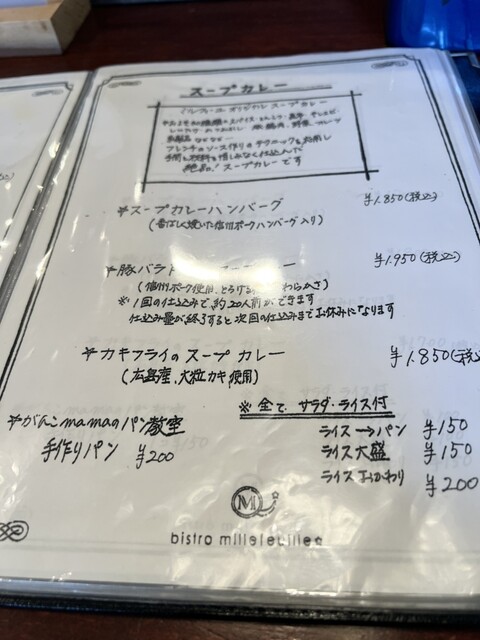 スープカレー
ミルフィーユ オリジナル スープカレー
フレンチのソース作りのテクニックを
手間と材料を惜しみなく仕込んだ
絶品!スープカレーです
*スープカレーハンバーグ ¥1.850(税込)
(香ばしく焼いた信州ポークハンバーグ入り)
*豚バラ ¥1.950(税込)
(信州ポーク使用、とろける やわらかさ)
※1回の仕込みで、約20人前ができます
仕込み量が終了すると次回の仕込みまでお休みになります
*カキフライのスープ カレー ¥1.850(税込
(広島産、大粒カキ使用)
※全て サラダ・ライス付
*がんこmamaのパン教室
手作りパン ¥200
ライス→パン ¥150
ライス大盛 ¥150
ライスおかわり ¥200
M
bistro millefeuilles